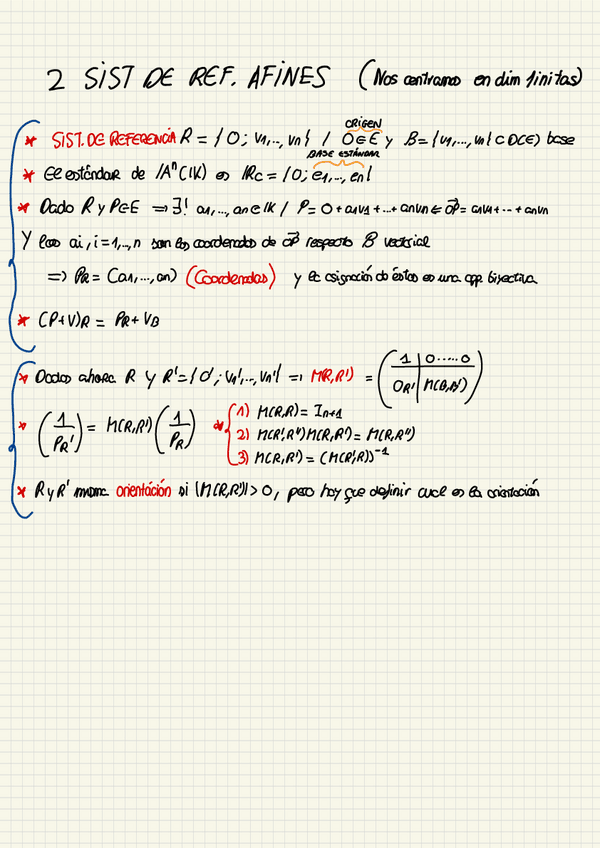 2 SIST DE REF. AFINES (Nos centramos en dim finitas)
ORIGEN
* SIST. DE REFERENCIA R = {O; v1,..,vn} / O∈E y B={v1,...,vn} ⊂ D(E) base
BASE ESTÁNDAR
* El estándar de /Aⁿ(IK) es IRc = {O; e1,..,en}
* Dado R y P∈E ⇒ ∃! a1,...,an∈IK / P = O + a1v1 + ... + anvn ⇐ OP = a1v1 + .. + anvn
Y los ai, i=1,..,n son las coordenadas de OP respecto B vectorial
⇒ PR = (a1,...,an) (Coordenadas) y la asignación de éstas es una app. biyectiva
* (P+V)R = PR + VB
* Dados ahora R y R'={O'; v1',..,vn'} ⇒ M(R,R') = (1 | 0.....0
OR' | M(B,B'))
* (1 / PR') = M(R,R') (1 / PR) * { 1) M(R,R) = In+1
2) M(R',R'')M(R,R') = M(R,R'')
3) M(R,R') = (M(R',R))⁻¹
* R y R' misma orientación si |M(R,R')| > 0, pero hay que definir cual es la orientación